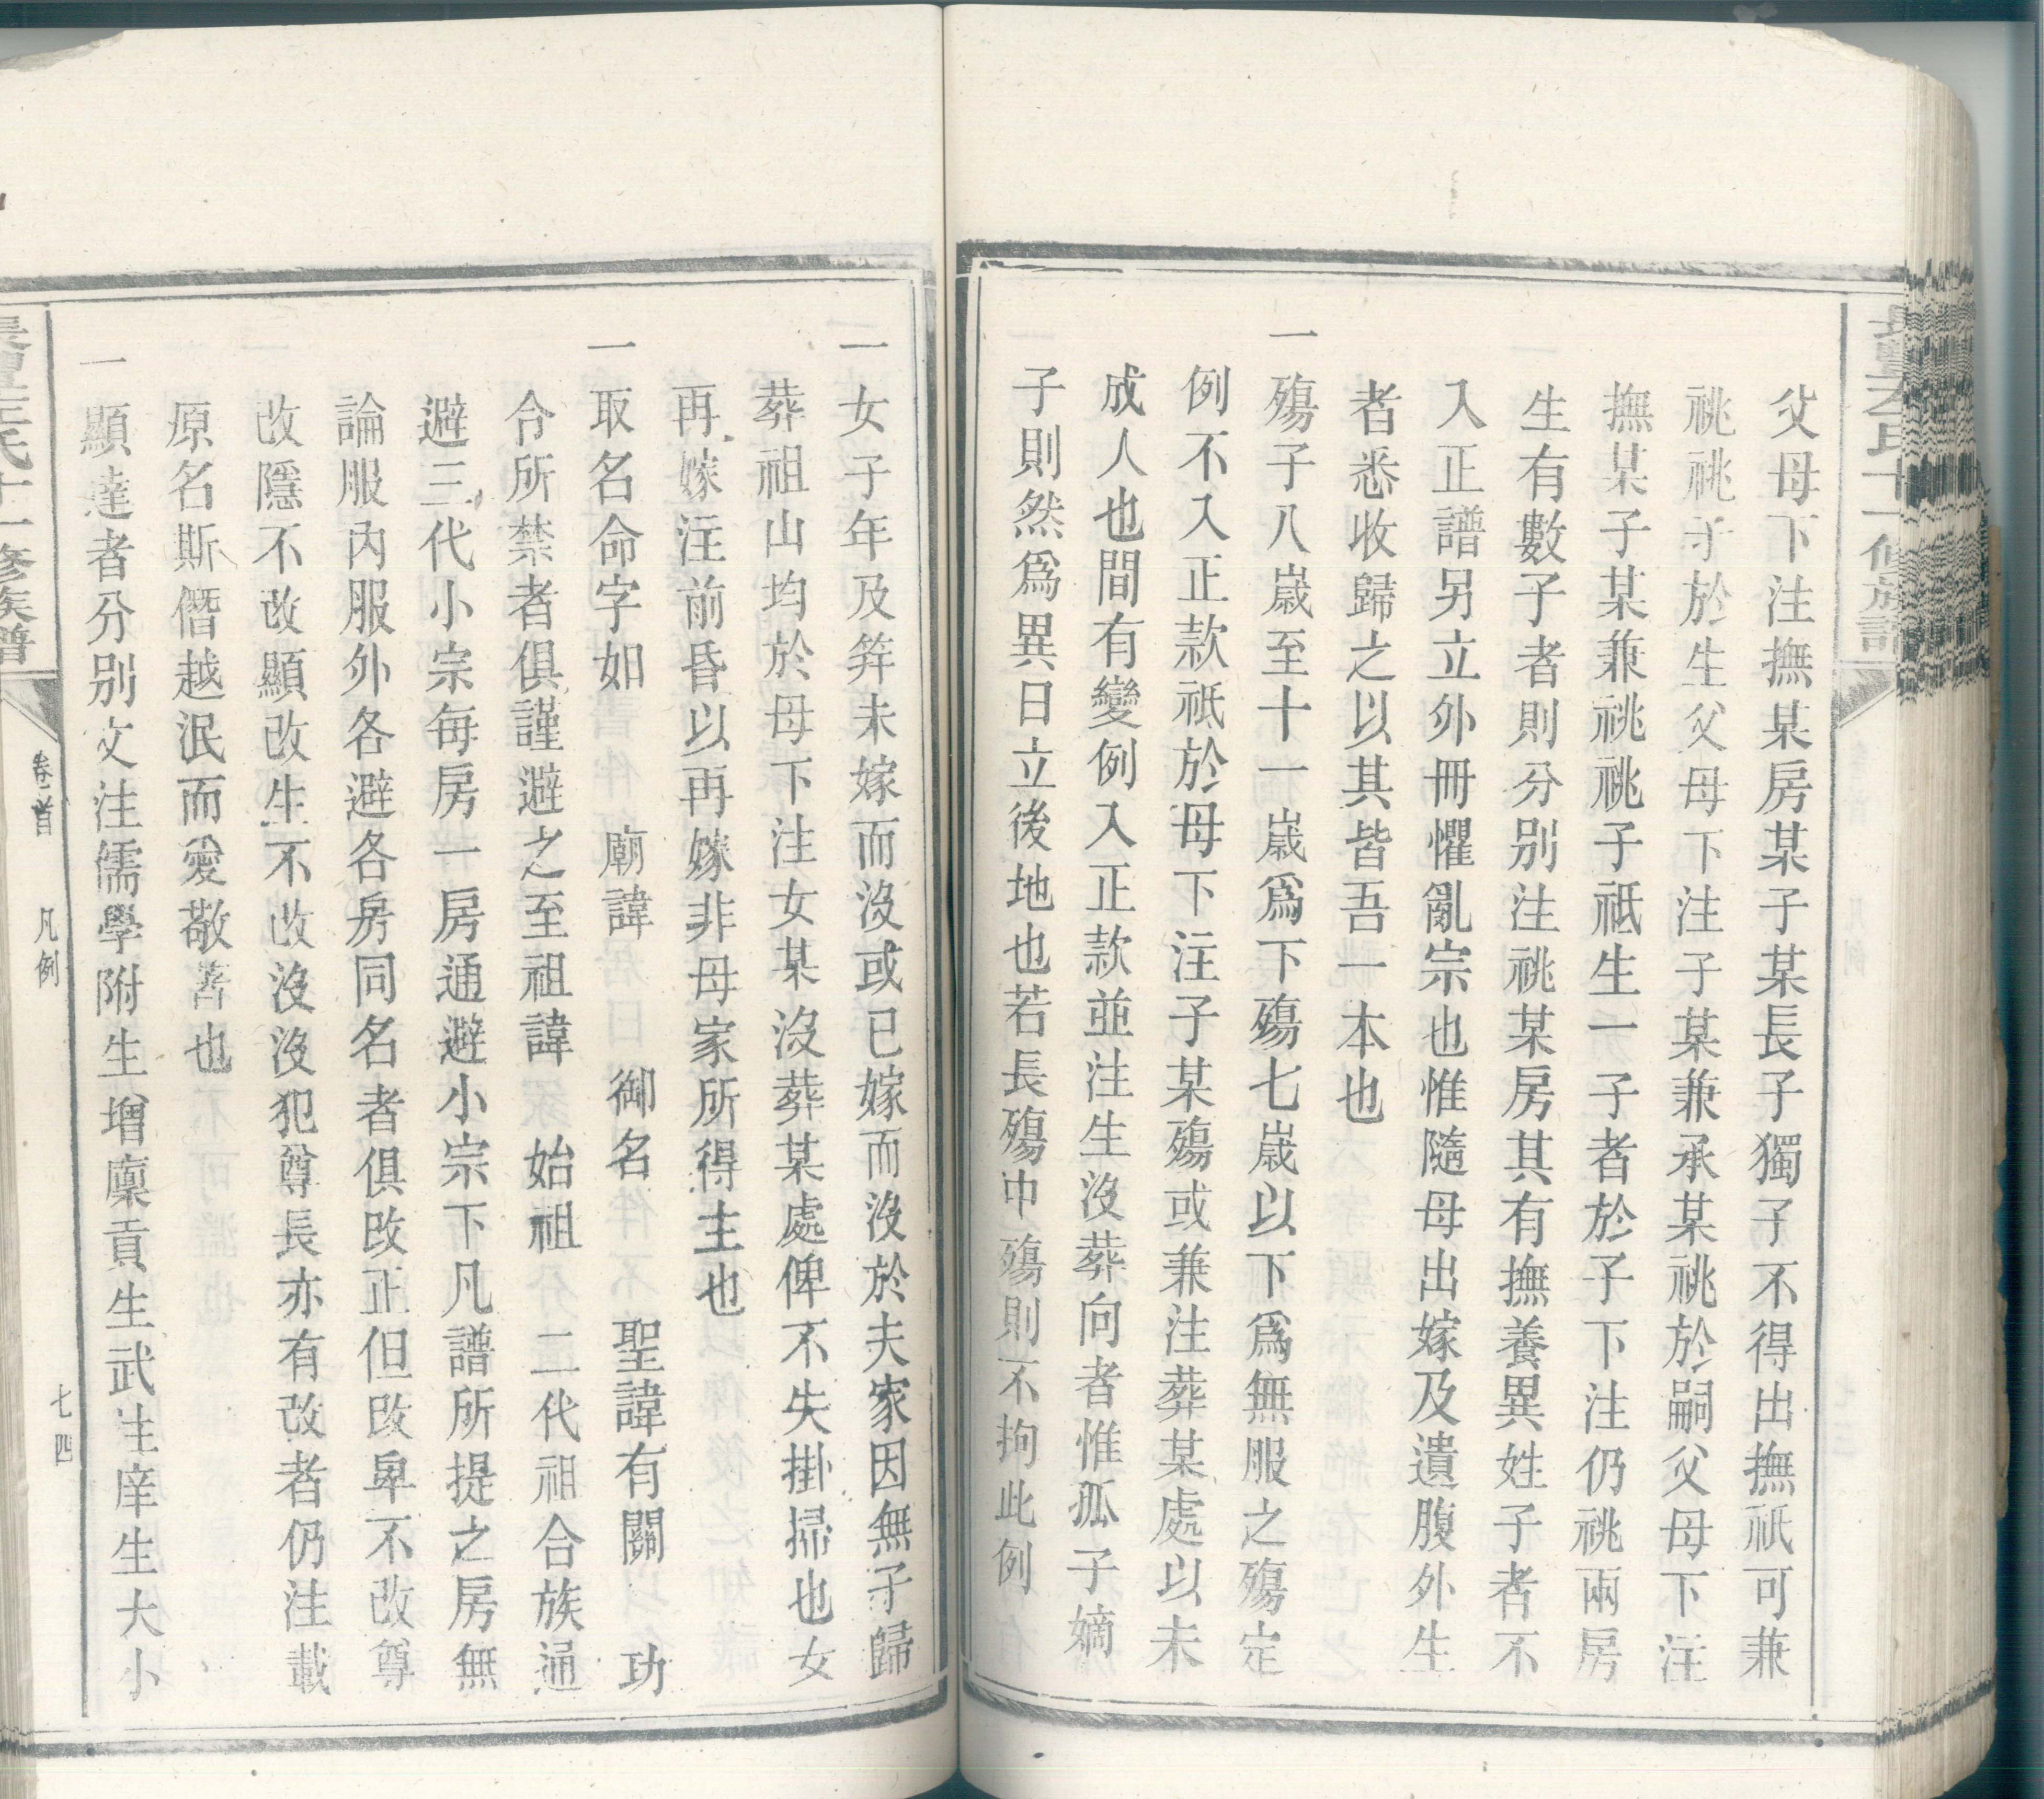 父母下注撫某房某子某長子獨子不得出撫祇可兼
祧祧子於生父母下注子某兼承某祧於嗣父母下注
撫某子某兼祧祧子祇生一子者於子下注仍祧兩房
生有數子者則分別注祧某房其有撫養異姓子者不
入正譜另立外冊懼亂宗也惟隨母出嫁及遺腹外生
者悉收歸之以其皆吾一本也
一殤子八歲至十一歲爲下殤七歲以下爲無服之殤定
例不入正款祇於母下注子某殤或兼注葬某處以未
成人也間有變例入正款並注生沒葬向者惟孤子嫡
子則然爲異日立後地也若長殤中殤則不拘此例
一女子年及笄未嫁而沒或已嫁而沒於夫家因無子歸
葬祖山均於母下注女某沒葬某處俾不失掛掃也女
再嫁注前昏以再嫁非母家所得主也
一取名命字如 廟諱 御名 聖諱有關 功
令所禁者俱謹避之至祖諱 始祖 二代祖合族通
避三代小宗每房一房通避小宗下凡譜所提之房無
論服內服外各避各房同名者俱改正但改卑不改尊
改隱不改顯改生不改沒沒犯尊長亦有改者仍注載
原名斯僭越泯而愛敬著也
一顯達者分別文注儒學附生增廩貢生武注庠生大小
卷首 凡例 七四